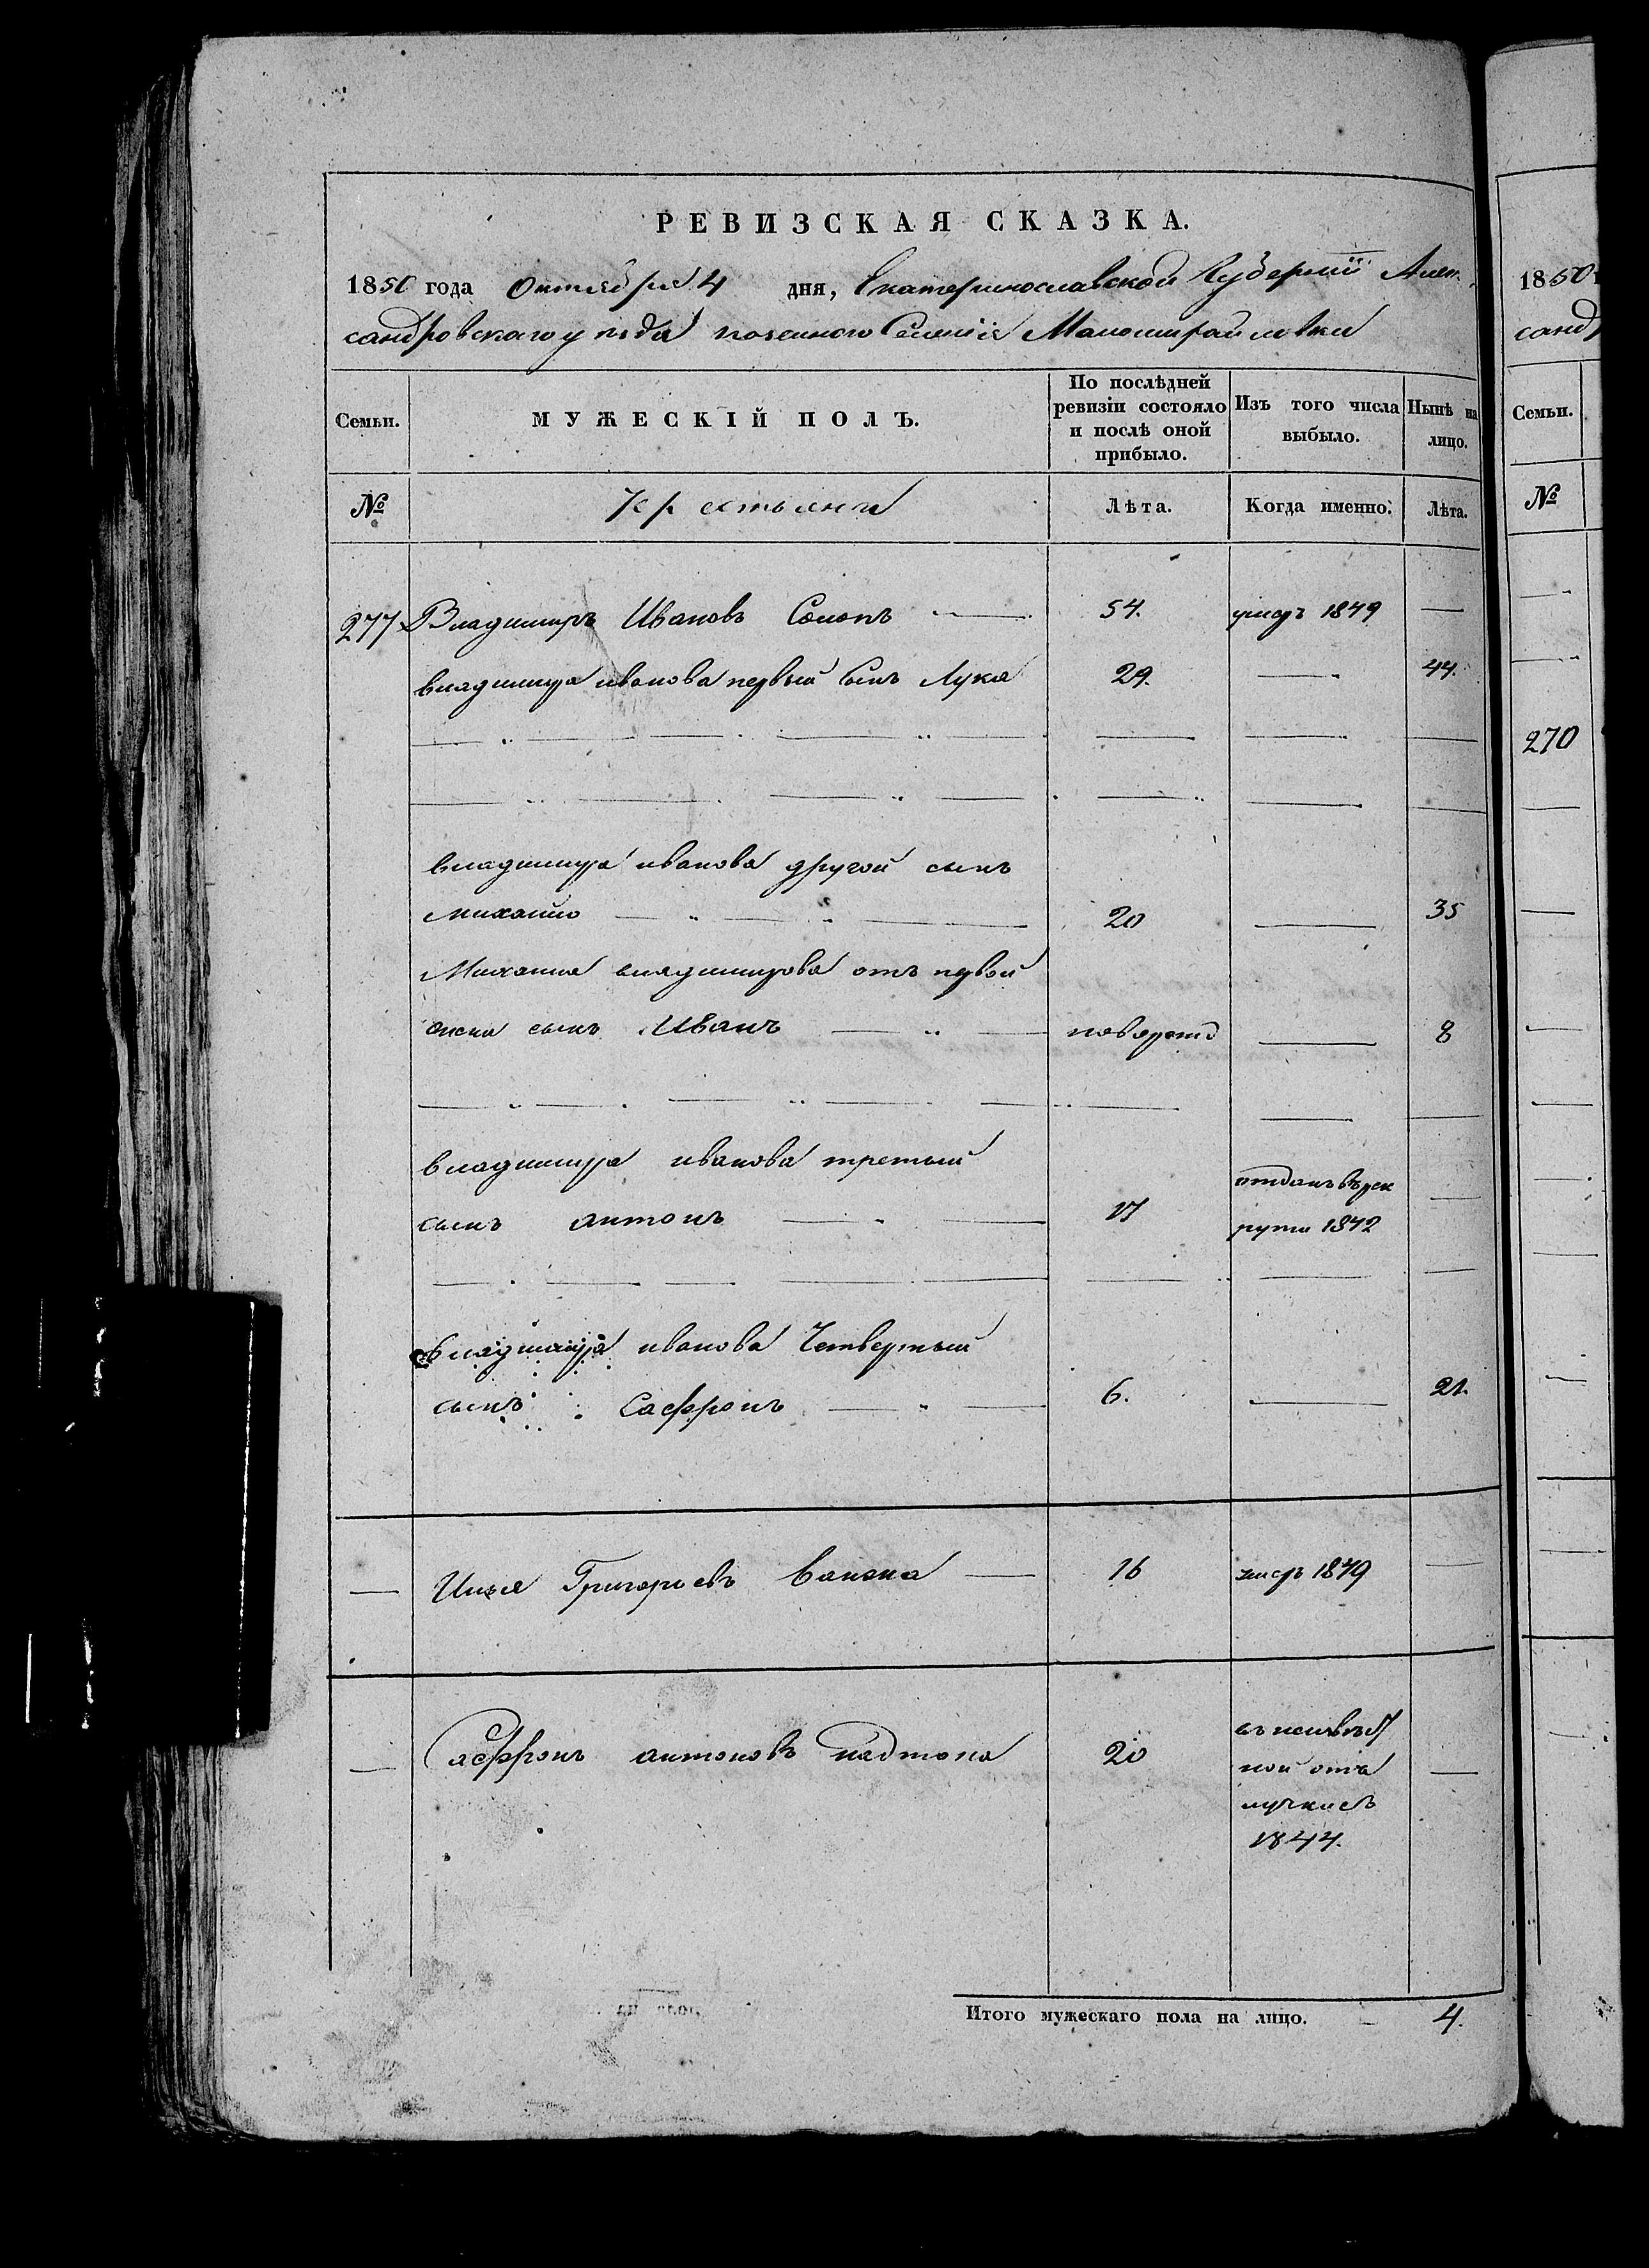 РЕВИЗСКАЯ СКАЗКА.
1850 года Октября 4 дня, Екатеринославской Губерніи Алек
сандровскаго уѣзда казеннаго Селенія Маломихайловки
Семьи. МУЖЕСКІЙ ПОЛЪ. По послѣдней ревизіи состояло и послѣ оной прибыло. Изъ того числа выбыло. Нынѣ на лицо.
№ Крестьяни Лѣта. Когда именно. Лѣта.
277 Владимиръ Ивановъ Солопъ 54. умеръ 1849 —
владимира иванова первый Сынъ Лука 29. — 44.
владимира иванова другой сынъ
михайло 20 — 35
Михаила владимирова отъ первой
жены сынъ Иванъ новорожд — 8
владимира иванова третьий
сынъ антонъ 17 отданъ въ рек
руты 1842 —
владимира иванова Четвертый
сынъ Сафронъ 6. — 21.
— Григорьевъ 16 умеръ 1849 —
— Сафронъ антоновъ 20 въ неизвѣст
ной отъ
лучкѣ съ
1844. —
Итого мужескаго пола на лицо. 4.
1850
санд
Семьи.
№
270